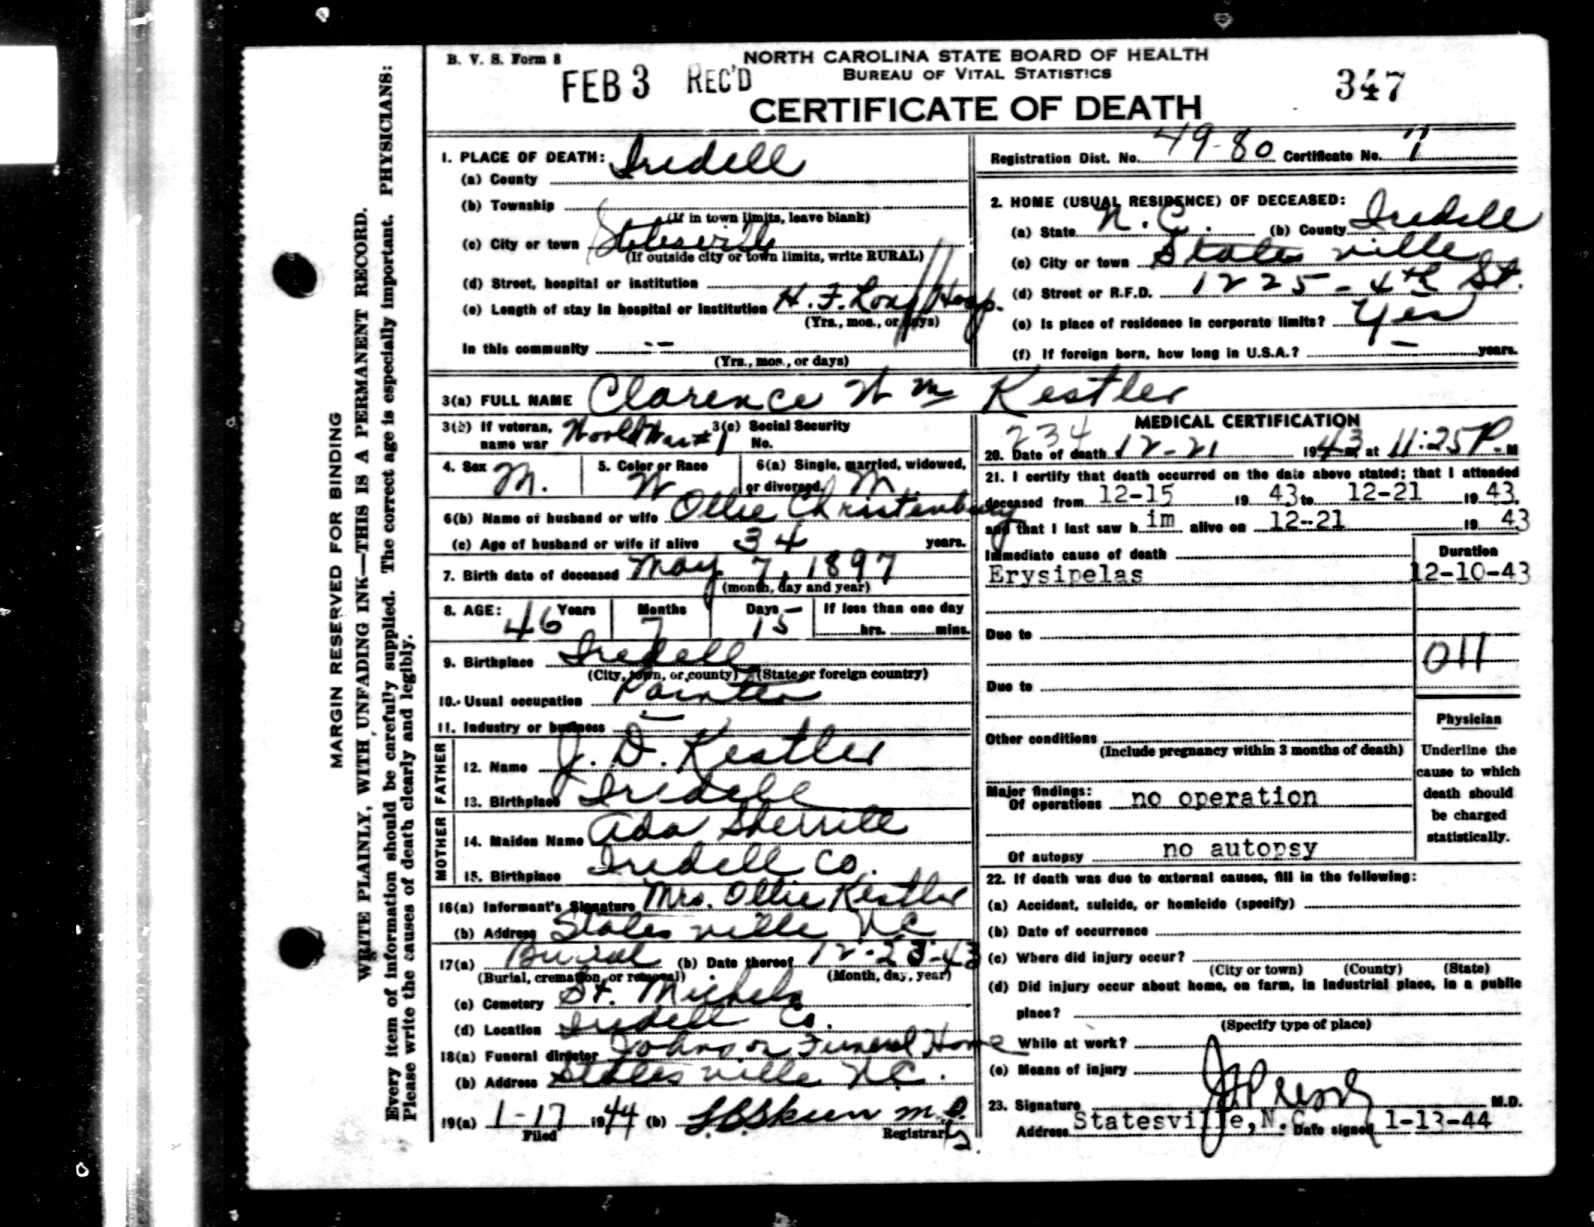 B. V. S. Form 8
FEB 3 REC'D
NORTH CAROLINA STATE BOARD OF HEALTH
BUREAU OF VITAL STATISTICS
CERTIFICATE OF DEATH
347
MARGIN RESERVED FOR BINDING
WRITE PLAINLY, WITH UNFADING INK—THIS IS A PERMANENT RECORD.
Every item of information should be carefully supplied. The correct age is especially important. PHYSICIANS:
Please write the causes of death clearly and legibly.
1. PLACE OF DEATH: Iredell
(a) County
(b) Township
(If in town limits, leave blank)
(c) City or town Statesville
(If outside city or town limits, write RURAL)
(d) Street, hospital or institution
(e) Length of stay in hospital or institution H. F. Long Hosp.
(Yrs., mos., or days)
In this community --
(Yrs., mos., or days)
Registration Dist. No. 49-80 Certificate No. 7
2. HOME (USUAL RESIDENCE) OF DECEASED:
(a) State N. C. (b) County Iredell
(c) City or town Statesville
(d) Street or R.F.D. 1225 - 4th St.
(e) Is place of residence in corporate limits? Yes
(f) If foreign born, how long in U.S.A.? — years.
3(a) FULL NAME Clarence Wm Kestler
3(b) If veteran, name war World War #1 3(c) Social Security No.
4. Sex M. 5. Color or Race W 6(a) Single, married, widowed, or divorced. M
6(b) Name of husband or wife Ollie Christenbury
(c) Age of husband or wife if alive 34 years.
7. Birth date of deceased May 7, 1897
(month, day and year)
8. AGE: 46 Years 7 Months 15 Days — If less than one day hrs. mins.
9. Birthplace Iredell
(City, town, or county) (State or foreign country)
10. Usual occupation Painter
11. Industry or business —
FATHER
12. Name J. D. Kestler
13. Birthplace Iredell
MOTHER
14. Maiden Name Ada Sherrill
15. Birthplace Iredell Co.
16(a) Informant's Signature Mrs. Ollie Kestler
(b) Address Statesville N C
17(a) Burial (b) Date thereof 12-23-43
(Burial, cremation, or removal) (Month, day, year)
(c) Cemetery St. Michels
(d) Location Iredell Co.
18(a) Funeral director Johnson Funeral Home
(b) Address Statesville N.C.
19(a) 1-17 1944 (b) M.D.
Filed Registrar
MEDICAL CERTIFICATION
234
20. Date of death 12-21 1943, at 11:25 P. M
21. I certify that death occurred on the date above stated; that I attended
deceased from 12-15 19 43 to 12-21 19 43,
and that I last saw h im alive on 12-21 19 43
Immediate cause of death Duration
Erysipelas 12-10-43
Due to
011
Due to
Other conditions
(Include pregnancy within 3 months of death)
Major findings:
Of operations no operation
Of autopsy no autopsy
Physician
Underline the
cause to which
death should
be charged
statistically.
22. If death was due to external causes, fill in the following:
(a) Accident, suicide, or homicide (specify)
(b) Date of occurrence
(c) Where did injury occur?
(City or town) (County) (State)
(d) Did injury occur about home, on farm, in industrial place, in a public
place?
(Specify type of place)
While at work?
(e) Means of injury
23. Signature M.D.
Address Statesville, N.C. Date signed 1-13-44